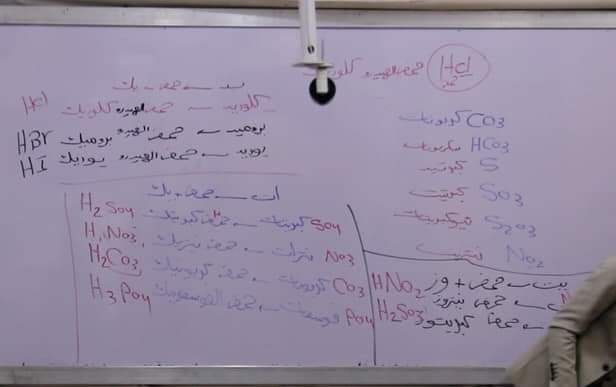 HCl حمض الهيدروكلوريك
يد ← حمض - يك
HCl كلوريد ← حمض الهيدروكلوريك
HBr بروميد ← حمض الهيدروبروميك
HI يوديد ← حمض الهيدرويوديك
كربونات CO3
بيكربونات HCO3
كبريتيد S
كبريتيت SO3
ثيوكبريتات S2O3
نيتريت NO2
ات ← حمض - يك
H2SO4 كبريتات ← حمض كبريتيك SO4
HNO3 نترات ← حمض نتريك NO3
H2CO3 كربونات ← حمض كربونيك CO3
H3PO4 فوسفات ← حمض الفوسفوريك PO4
يت ← حمض + وز
HNO2 ← حمض نيتروز N
H2SO3 ← حمض كبريتوز